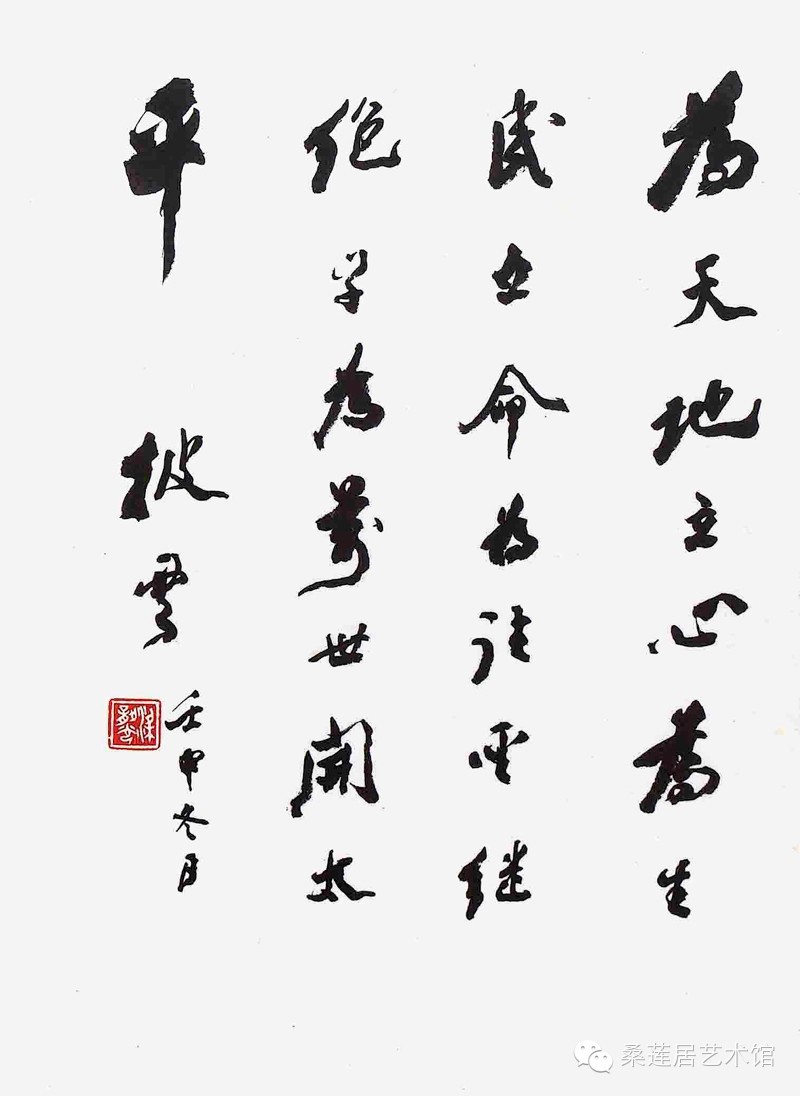 為天地立心為生
民立命為往聖继
絶学為萬世開太
平 披雲
壬申冬月
桑莲居艺术馆